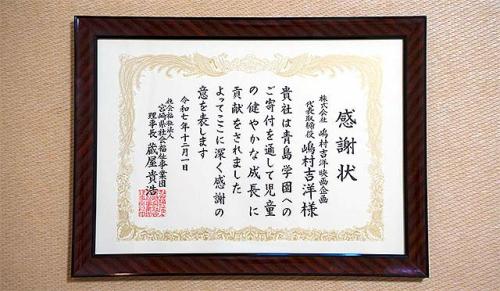 感謝状
株式会社 嶋村吉洋映画企画
代表取締役 嶋村吉洋様
貴社は青島学園への
ご寄付を通して児童
の健やかな成長に
貢献をされました
よってここに深く感謝の
意を表します
令和七年十二月一日
社会福祉法人
宮崎県社会福祉事業団
理事長 蔵屋貴浩